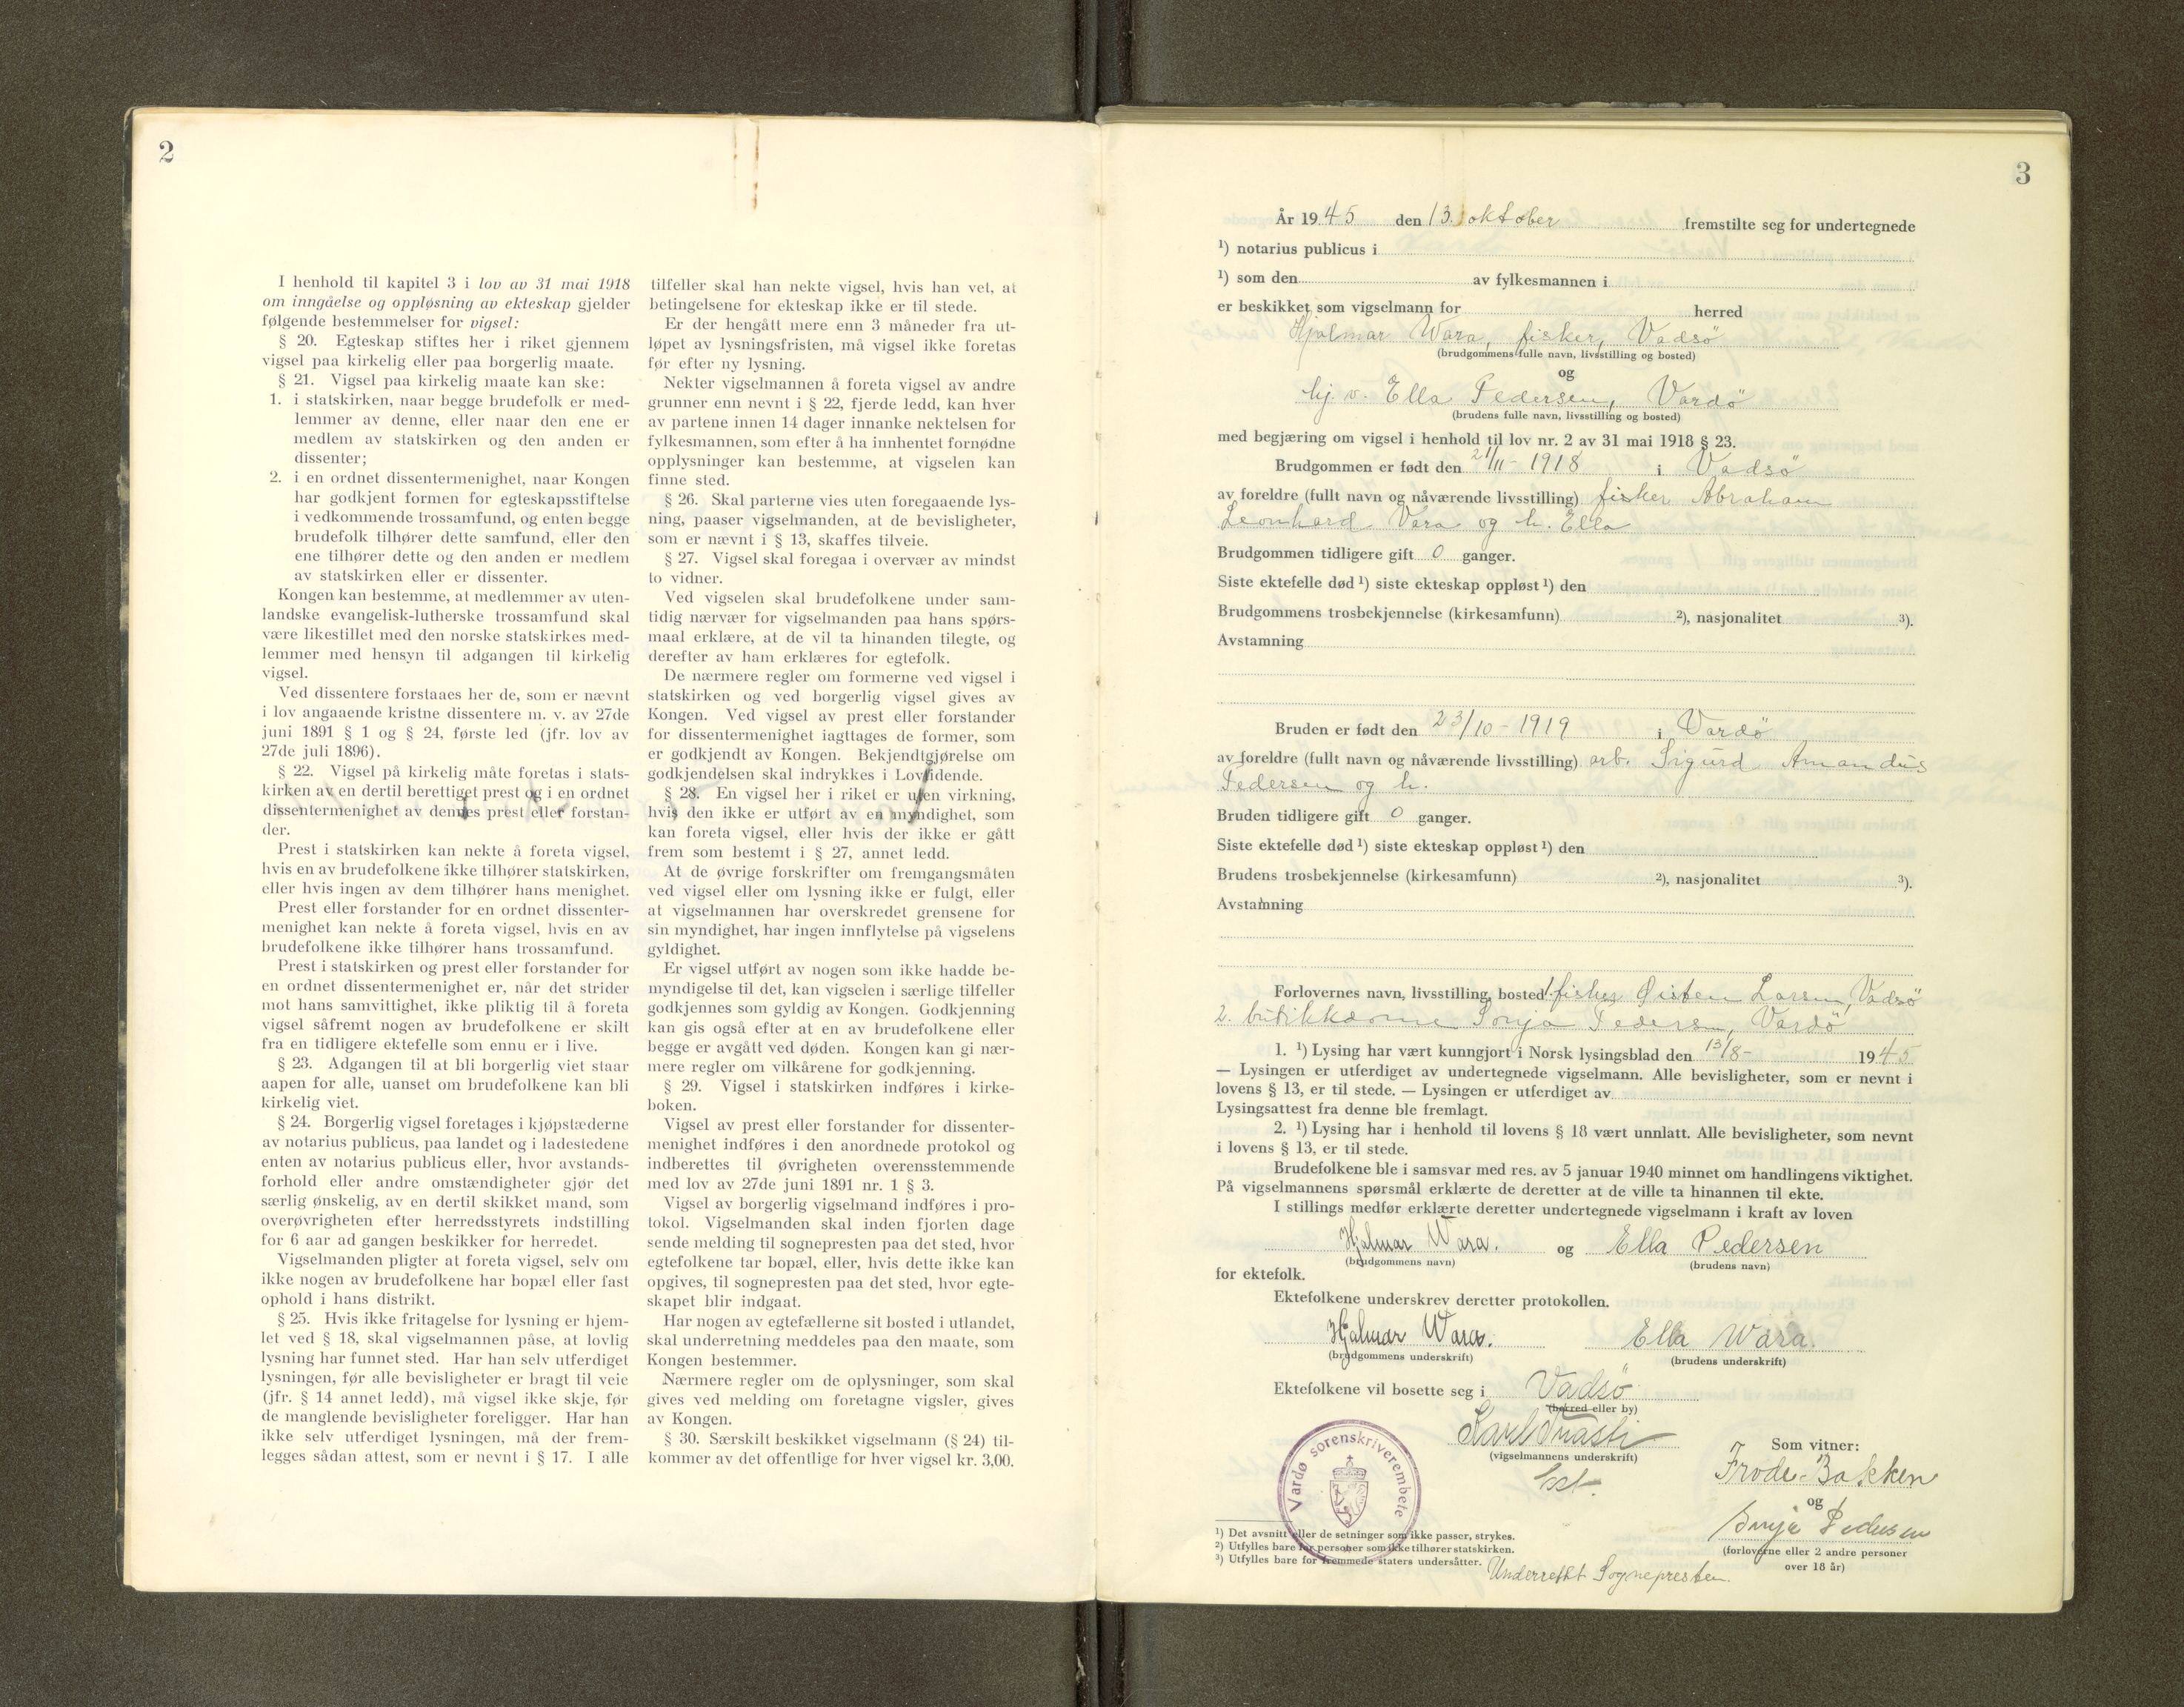 2
I henhold til kapitel 3 i lov av 31 mai 1918
om inngåelse og oppløsning av ekteskap gjelder
følgende bestemmelser for vigsel:
§ 20. Egteskap stiftes her i riket gjennem
vigsel paa kirkelig eller paa borgerlig maate.
§ 21. Vigsel paa kirkelig maate kan ske:
1. i statskirken, naar begge brudefolk er med-
lemmer av denne, eller naar den ene er
medlem av statskirken og den anden er
dissenter;
2. i en ordnet dissentermenighet, naar Kongen
har godkjent formen for egteskapsstiftelse
i vedkommende trossamfund, og enten begge
brudefolk tilhører dette samfund, eller den
ene tilhører dette og den anden er medlem
av statskirken eller er dissenter.
Kongen kan bestemme, at medlemmer av uten-
landske evangelisk-lutherske trossamfund skal
være likestillet med den norske statskirkes med-
lemmer med hensyn til adgangen til kirkelig
vigsel.
Ved dissentere forstaaes her de, som er nævnt
i lov angaaende kristne dissentere m. v. av 27de
juni 1891 § 1 og § 24, første led (jfr. lov av
27de juli 1896).
§ 22. Vigsel på kirkelig måte foretas i stats-
kirken av en dertil berettiget prest og i en ordnet
dissentermenighet av dennes prest eller forstan-
der.
Prest i statskirken kan nekte å foreta vigsel,
hvis en av brudefolkene ikke tilhører statskirken,
eller hvis ingen av dem tilhører hans menighet.
Prest eller forstander for en ordnet dissenter-
menighet kan nekte å foreta vigsel, hvis en av
brudefolkene ikke tilhører hans trossamfund.
Prest i statskirken og prest eller forstander for
en ordnet dissentermenighet er, når det strider
mot hans samvittighet, ikke pliktig til å foreta
vigsel såfremt nogen av brudefolkene er skilt
fra en tidligere ektefelle som ennu er i live.
§ 23. Adgangen til at bli borgerlig viet staar
aapen for alle, uanset om brudefolkene kan bli
kirkelig viet.
§ 24. Borgerlig vigsel foretages i kjøpstæderne
av notarius publicus, paa landet og i ladestedene
enten av notarius publicus eller, hvor avstands-
forhold eller andre omstændigheter gjør det
særlig ønskelig, av en dertil skikket mand, som
overøvrigheten efter herredsstyrets indstilling
for 6 aar ad gangen beskikker for herredet.
Vigselmanden pligter at foreta vigsel, selv om
ikke nogen av brudefolkene har bopæl eller fast
ophold i hans distrikt.
§ 25. Hvis ikke fritagelse for lysning er hjem-
let ved § 18, skal vigselmannen påse, at lovlig
lysning har funnet sted. Har han selv utferdiget
lysningen, før alle bevisligheter er bragt til veie
(jfr. § 14 annet ledd), må vigsel ikke skje, før
de manglende bevisligheter foreligger. Har han
ikke selv utferdiget lysningen, må der frem-
legges sådan attest, som er nevnt i § 17. I alle
tilfeller skal han nekte vigsel, hvis han vet, at
betingelsene for ekteskap ikke er til stede.
Er der hengått mere enn 3 måneder fra ut-
løpet av lysningsfristen, må vigsel ikke foretas
før efter ny lysning.
Nekter vigselmannen å foreta vigsel av andre
grunner enn nevnt i § 22, fjerde ledd, kan hver
av partene innen 14 dager innanke nektelsen for
fylkesmannen, som efter å ha innhentet fornødne
opplysninger kan bestemme, at vigselen kan
finne sted.
§ 26. Skal parterne vies uten foregaaende lys-
ning, paaser vigselmanden, at de bevisligheter,
som er nævnt i § 13, skaffes tilveie.
§ 27. Vigsel skal foregaa i overvær av mindst
to vidner.
Ved vigselen skal brudefolkene under sam-
tidig nærvær for vigselmanden paa hans spørs-
maal erklære, at de vil ta hinanden tilegte, og
derefter av ham erklæres for egtefolk.
De nærmere regler om formerne ved vigsel i
statskirken og ved borgerlig vigsel gives av
Kongen. Ved vigsel av prest eller forstander
for dissentermenighet iagttages de former, som
er godkjendt av Kongen. Bekjendtgjørelse om
godkjendelsen skal indrykkes i Lovtidende.
§ 28. En vigsel her i riket er uten virkning,
hvis den ikke er utført av en myndighet, som
kan foreta vigsel, eller hvis der ikke er gått
frem som bestemt i § 27, annet ledd.
At de øvrige forskrifter om fremgangsmåten
ved vigsel eller om lysning ikke er fulgt, eller
at vigselmannen har overskredet grensene for
sin myndighet, har ingen innflytelse på vigselens
gyldighet.
Er vigsel utført av nogen som ikke hadde be-
myndigelse til det, kan vigselen i særlige tilfeller
godkjennes som gyldig av Kongen. Godkjenning
kan gis også efter at en av brudefolkene eller
begge er avgått ved døden. Kongen kan gi nær-
mere regler om vilkårene for godkjenning.
§ 29. Vigsel i statskirken indføres i kirke-
boken.
Vigsel av prest eller forstander for dissenter-
menighet indføres i den anordnede protokol og
indberettes til øvrigheten overensstemmende
med lov av 27de juni 1891 nr. 1 § 3.
Vigsel av borgerlig vigselmand indføres i pro-
tokol. Vigselmanden skal inden fjorten dage
sende melding til sognepresten paa det sted, hvor
egtefolkene tar bopæl, eller, hvis dette ikke kan
opgives, til sognepresten paa det sted, hvor egte-
skapet blir indgaat.
Har nogen av egtefællerne sit bosted i utlandet,
skal underretning meddeles paa den maate, som
Kongen bestemmer.
Nærmere regler om de oplysninger, som skal
gives ved melding om foretagne vigsler, gives
av Kongen.
§ 30. Særskilt beskikket vigselmann (§ 24) til-
kommer av det offentlige for hver vigsel kr. 3,00.
3
År 1945 den 13. oktober fremstilte seg for undertegnede
¹) notarius publicus i
¹) som den av fylkesmannen i
er beskikket som vigselmann for herred
Hjalmar Wara, fisker, Vadsö
(brudgommens fulle navn, livsstilling og bosted)
og
hj. v. Ella Pedersen, Vardö
(brudens fulle navn, livsstilling og bosted)
med begjæring om vigsel i henhold til lov nr. 2 av 31 mai 1918 § 23.
Brudgommen er født den 21/11- 1918 i Vadsö
av foreldre (fullt navn og nåværende livsstilling) fisker Abraham
Leonhard Vara og h. Ella
Brudgommen tidligere gift 0 ganger.
Siste ektefelle død ¹) siste ekteskap oppløst ¹) den
Brudgommens trosbekjennelse (kirkesamfunn) ²), nasjonalitet ³).
Avstamning
Bruden er født den 23/10- 1919 i Vardö
av foreldre (fullt navn og nåværende livsstilling) arb. Sigurd Amandus
Pedersen og h.
Bruden tidligere gift 0 ganger.
Siste ektefelle død ¹) siste ekteskap oppløst ¹) den
Brudens trosbekjennelse (kirkesamfunn) ²), nasjonalitet ³).
Avstamning
Forlovernes navn, livsstilling, bosted 1. fisker Øisten Larsen, Vadsö
2. butikkdame Sonja Pedersen, Vardö
1. ¹) Lysing har vært kunngjort i Norsk lysingsblad den 13/8- 1945
— Lysingen er utferdiget av undertegnede vigselmann. Alle bevisligheter, som er nevnt i
lovens § 13, er til stede. — Lysingen er utferdiget av
Lysingsattest fra denne ble fremlagt.
2. ¹) Lysing har i henhold til lovens § 18 vært unnlatt. Alle bevisligheter, som nevnt
i lovens § 13, er til stede.
Brudefolkene ble i samsvar med res. av 5 januar 1940 minnet om handlingens viktighet.
På vigselmannens spørsmål erklærte de deretter at de ville ta hinannen til ekte.
I stillings medfør erklærte deretter undertegnede vigselmann i kraft av loven
Hjalmar Wara. og Ella Pedersen
(brudgommens navn) (brudens navn)
for ektefolk.
Ektefolkene underskrev deretter protokollen.
Hjalmar Wara. Ella Wara.
(brudgommens underskrift) (brudens underskrift)
Ektefolkene vil bosette seg i Vadsö
(herred eller by)
Karl
(vigselmannens underskrift)
Som vitner:
Frode Bakken
og
Sonja Pedersen
(forloverne eller 2 andre personer
over 18 år)
Vardø sorenskriverembete
¹) Det avsnitt eller de setninger som ikke passer, strykes.
²) Utfylles bare for personer som ikke tilhører statskirken.
³) Utfylles bare for fremmede staters undersåtter.
Underrettet Sognepresten.